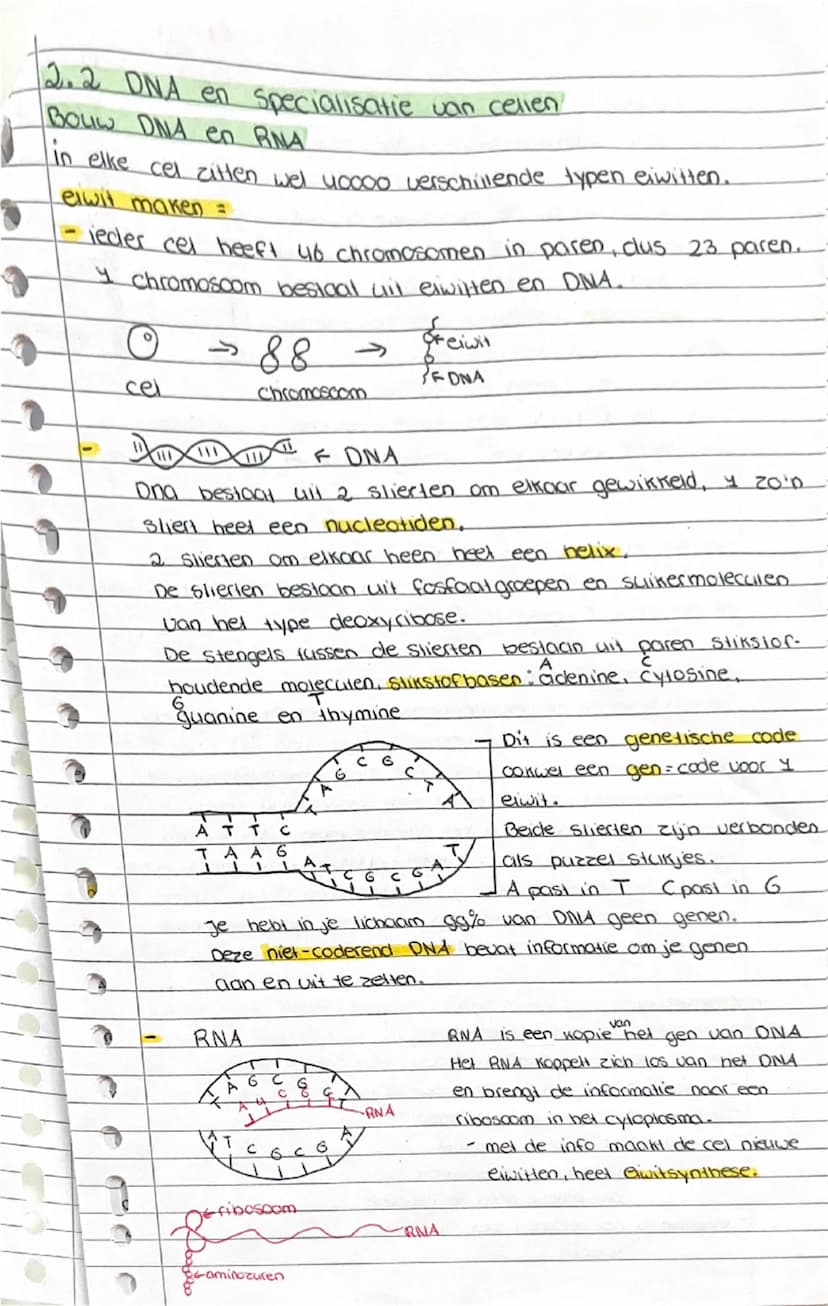 2.2 DNA en specialisatie van cellen
Bouw DNA en RNA
in elke cel zitten wel 40000 verschillende typen eiwitten.
eiwit maken =
- ieder cel heeft 46 chromosomen in paren, dus 23 paren.
1 chromosoom bestaat uit eiwitten en DNA.
→ 88 → ← eiwit
cel chromosoom ← DNA
- ← DNA
Dna bestaat uit 2 slierten om elkaar gewikkeld, 1 zo'n
sliert heet een nucleotiden.
2 slierten om elkaar heen heet een helix.
De slierten bestaan uit fosfaatgroepen en suikermoleculen
van het type deoxyribose.
De stengels tussen de slierten bestaan uit paren stikstof-
A C
houdende moleculen, stikstofbasen: adenine, cytosine,
G T
guanine en thymine
Dit is een genetische code
oowel een gen = code voor 1
eiwit.
Beide slierten zijn verbonden
als puzzel stukjes.
A past in T C past in G
T A G C G C T A
A T T C
T A A G A T C G C G A T
Je hebt in je lichaam 99% van DNA geen genen.
Deze niet-coderend DNA bevat informatie om je genen
aan en uit te zetten.
- RNA
T A G C G
A U C G C
RNA
A T C G C G A
RNA is een kopie van het gen van DNA
Het RNA koppelt zich los van het DNA
en brengt de informatie naar een
ribosoom in het cytoplasma.
- met de info maakt de cel nieuwe
eiwitten, heet eiwitsynthese.
← ribosoom
RNA
← aminozuren